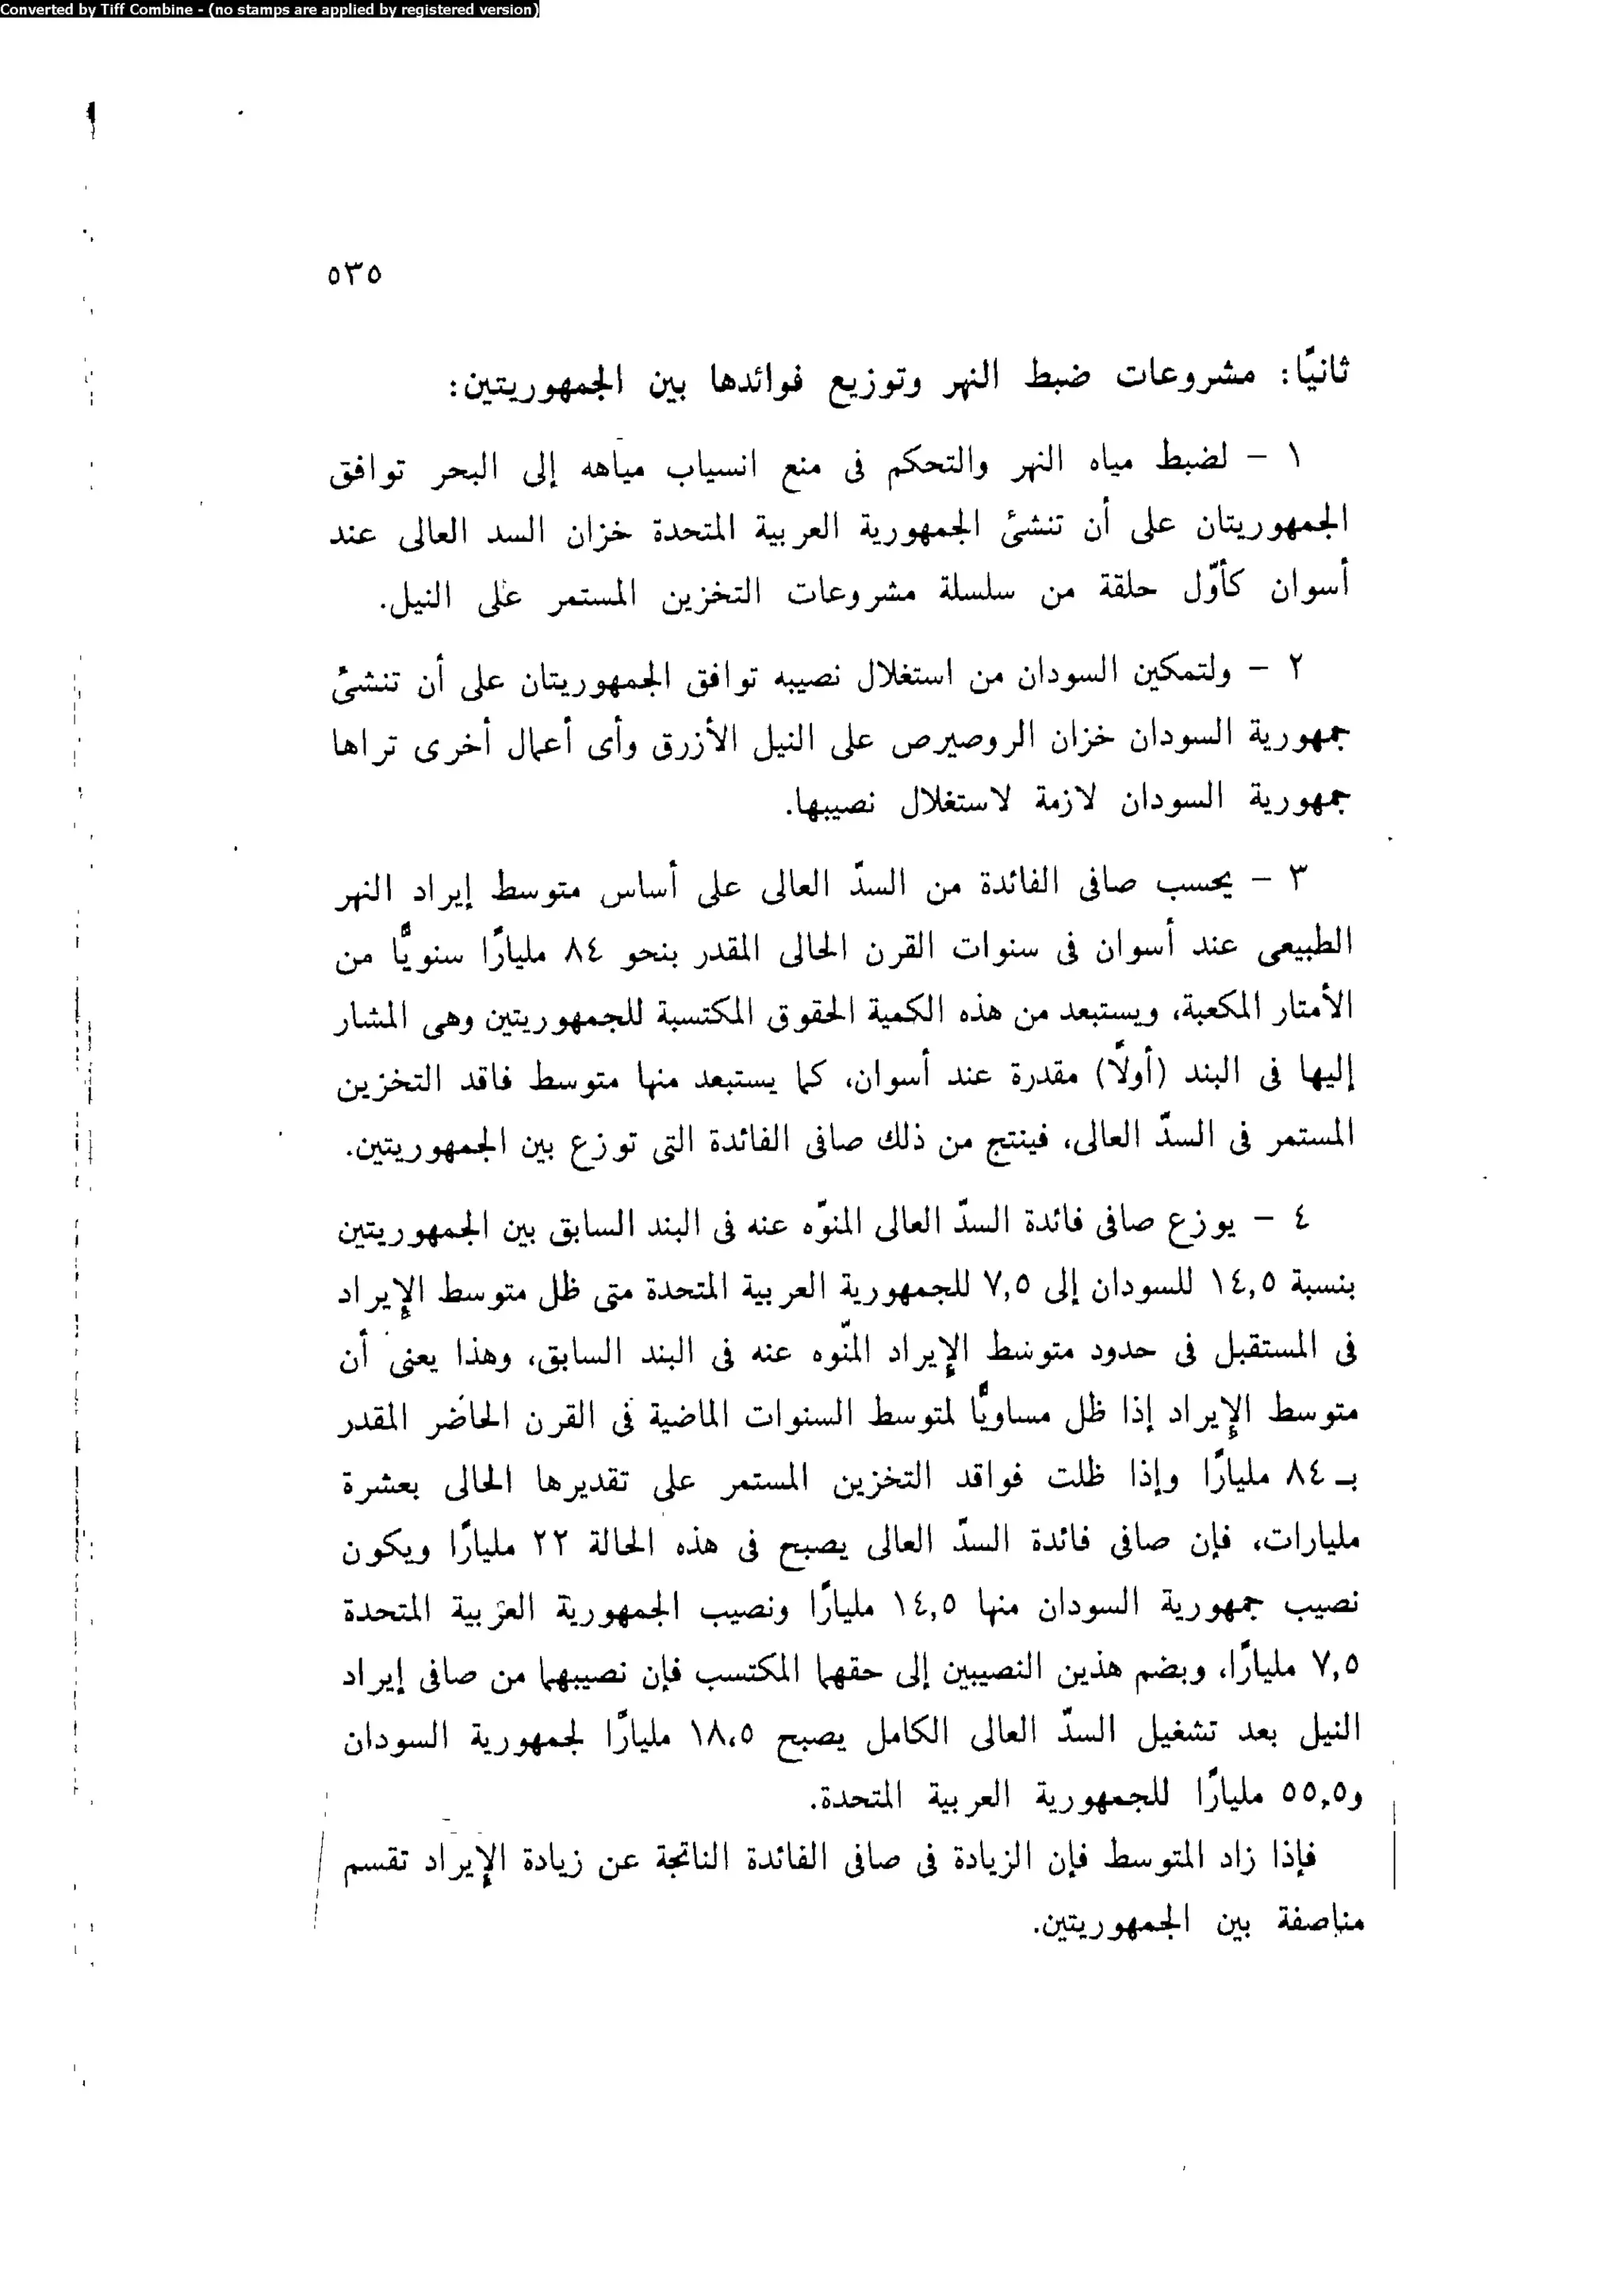 Converted by Tiff Combine - (no stamps are applied by registered version)
٥٣٥
ثانيًا: مشروعات ضبط النهر وتوزيع فوائدها بين الجمهوريتين:
١ - لضبط مياه النهر والتحكم فى منع انسياب مياهه إلى البحر توافق
الجمهوريتان على أن تنشئ الجمهورية العربية المتحدة خزان السد العالى عند
أسوان كأوّل حلقة من سلسلة مشروعات التخزين المستمر على النيل.
٢ - ولتمكين السودان من استغلال نصيبه توافق الجمهوريتان على أن تنشئ
جمهورية السودان خزان الروصيرص على النيل الأزرق وأى أعمال أخرى تراها
جمهورية السودان لازمة لاستغلال نصيبها.
٣ - يحسب صافى الفائدة من السدّ العالى على أساس متوسط إيراد النهر
الطبيعى عند أسوان فى سنوات القرن الحالى المقدر بنحو ٨٤ مليارًا سنويًّا من
الأمتار المكعبة، ويستبعد من هذه الكمية الحقوق المكتسبة للجمهوريتين وهى المشار
إليها فى البند (أولًا) مقدرة عند أسوان، كما يستبعد منها متوسط فاقد التخزين
المستمر فى السدّ العالى، فينتج من ذلك صافى الفائدة التى توزع بين الجمهوريتين.
٤ - يوزع صافى فائدة السدّ العالى المنوّه عنه فى البند السابق بين الجمهوريتين
بنسبة ١٤,٥ للسودان إلى ٧,٥ للجمهورية العربية المتحدة متى ظل متوسط الإيراد
فى المستقبل فى حدود متوسط الإيراد المنّوه عنه فى البند السابق، وهذا يعنى أن
متوسط الإيراد إذا ظل مساويًّا لمتوسط السنوات الماضية فى القرن الحاضر المقدر
بـ ٨٤ مليارًا وإذا ظلت فواقد التخزين المستمر على تقديرها الحالى بعشرة
مليارات، فإن صافى فائدة السدّ العالى يصبح فى هذه الحالة ٢٢ مليارًا ويكون
نصيب جمهورية السودان منها ١٤,٥ مليارًا ونصيب الجمهورية العربية المتحدة
٧,٥ مليارًا، وبضم هذين النصيبين إلى حقهما المكتسب فإن نصيبهما من صافى إيراد
النيل بعد تشغيل السدّ العالى الكامل يصبح ١٨,٥ مليارًا لجمهورية السودان
و٥٥,٥ مليارًا للجمهورية العربية المتحدة.
فإذا زاد المتوسط فإن الزيادة فى صافى الفائدة الناتجة عن زيادة الإيراد تقسم
مناصفة بين الجمهوريتين.